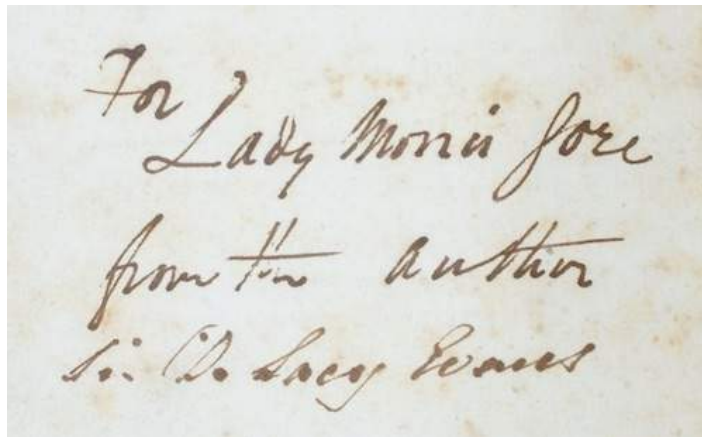 For
Lady Morris Gore
from the author
Sir De Lacy Evans